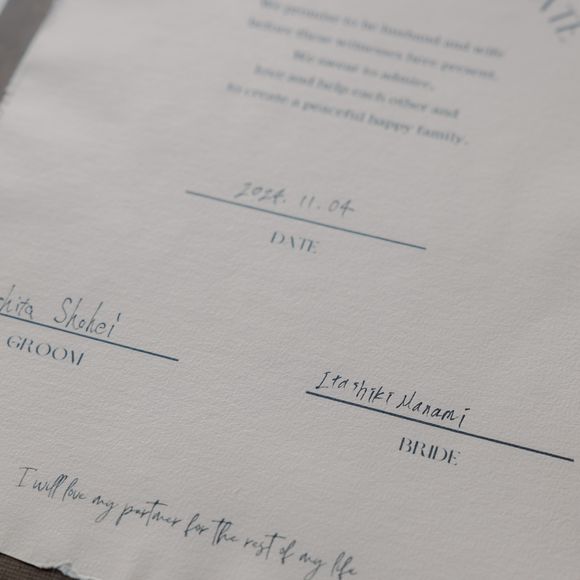 ATE
We promise to be husband and wife
before these witnesses here present.
We swear to admire,
love and help each other and
to create a peaceful happy family.
2024. 11. 04
DATE
chita Shohei
GROOM
Itashiki Manami
BRIDE
I will love my partner for the rest of my life